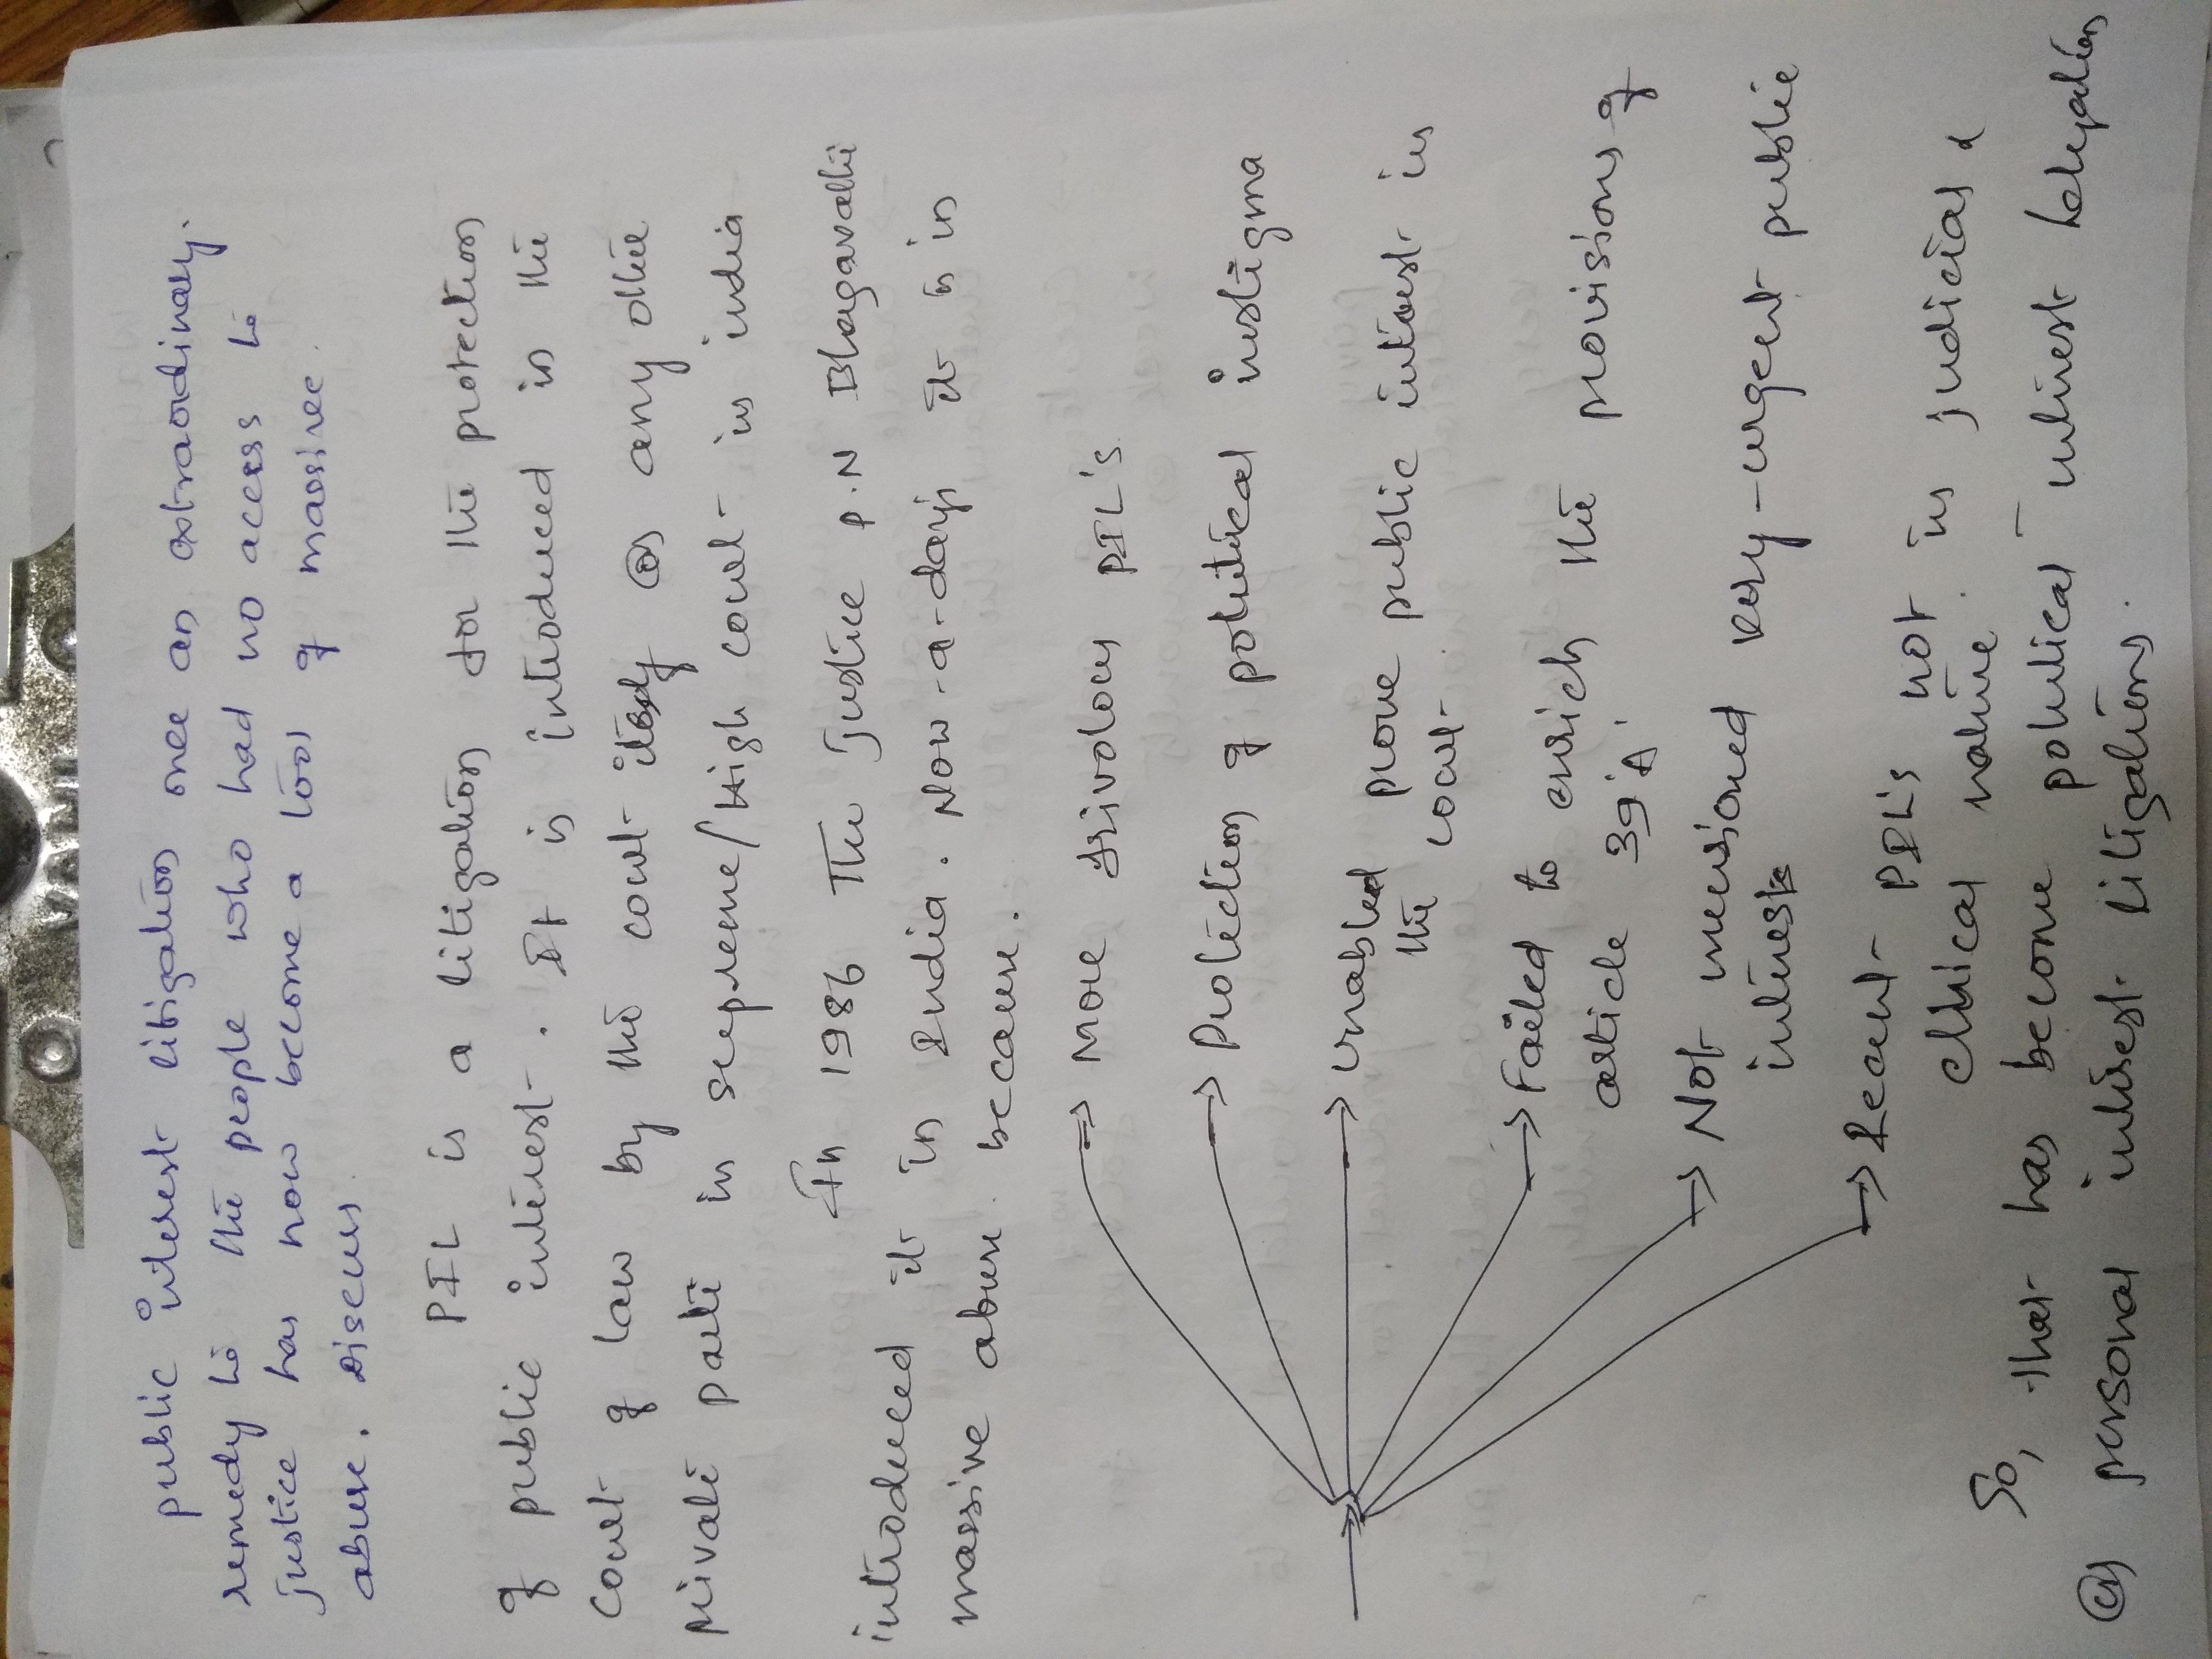 public interest litigation once an extraordinary.
remedy to the people who had no access to
justice has now become a tool of massive
abuse. Discuss.
PIL is a litigation for the protection
of public interest. It is introduced in the
Court of law by the court itself (or) any other
private parti in supreme/High court in india
In 1986 The Justice P.N Bhagavathi
introduced it in India. Now-a-days it is in
massive abuse because.
→ More frivolous PIL's
→ Protection of political instigma
→ unabled prove public interest in
the court.
→ Failed to enrich the provisions of
article 39'A'
→ Not mensioned very-urgent public
interests
→ Recent PIL's not in judicial &
ethical nature.
So, that has become political interest litigation
(or) personal interest litigation.